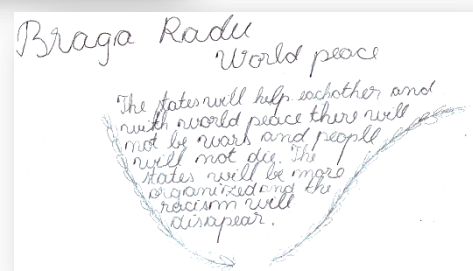 Braga Radu
World peace
The states will help eachother and
with world peace there will
not be wars and people
will not die. The
states will be more
organized and the
racism will
disapear.